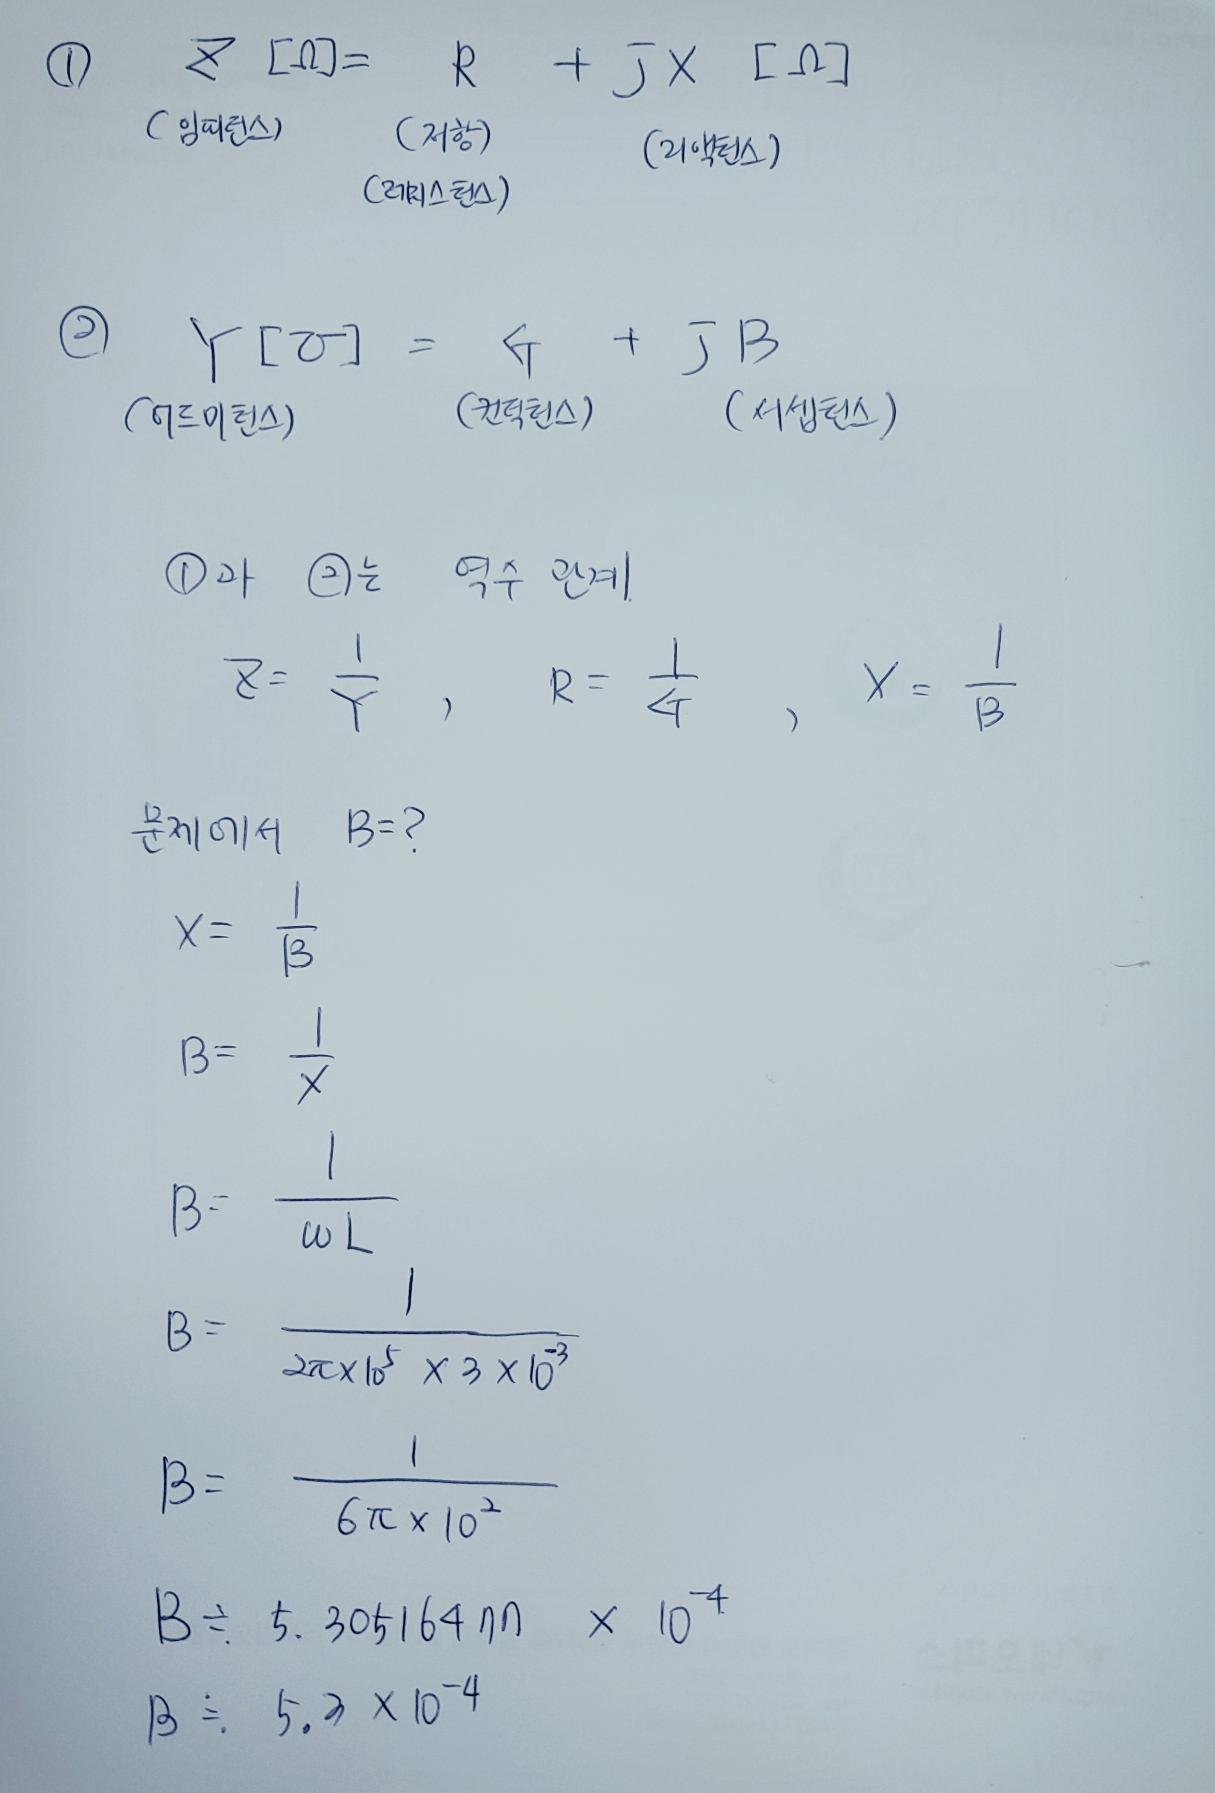 ① Z [Ω] = R + jX [Ω]
(임피턴스) (저항) (리액턴스)
(레지스턴스)
② Y [℧] = G + jB
(어드미턴스) (컨덕턴스) (서셉턴스)
①과 ②는 역수 관계
Z = 1/Y , R = 1/G , X = 1/B
문제에서 B=?
X = 1/B
B = 1/X
B = 1/ωL
B = 1/(2π×10⁵ × 3 × 10⁻³)
B = 1/(6π × 10²)
B ≒ 5.30516477 × 10⁻⁴
B ≒ 5.3 × 10⁻⁴